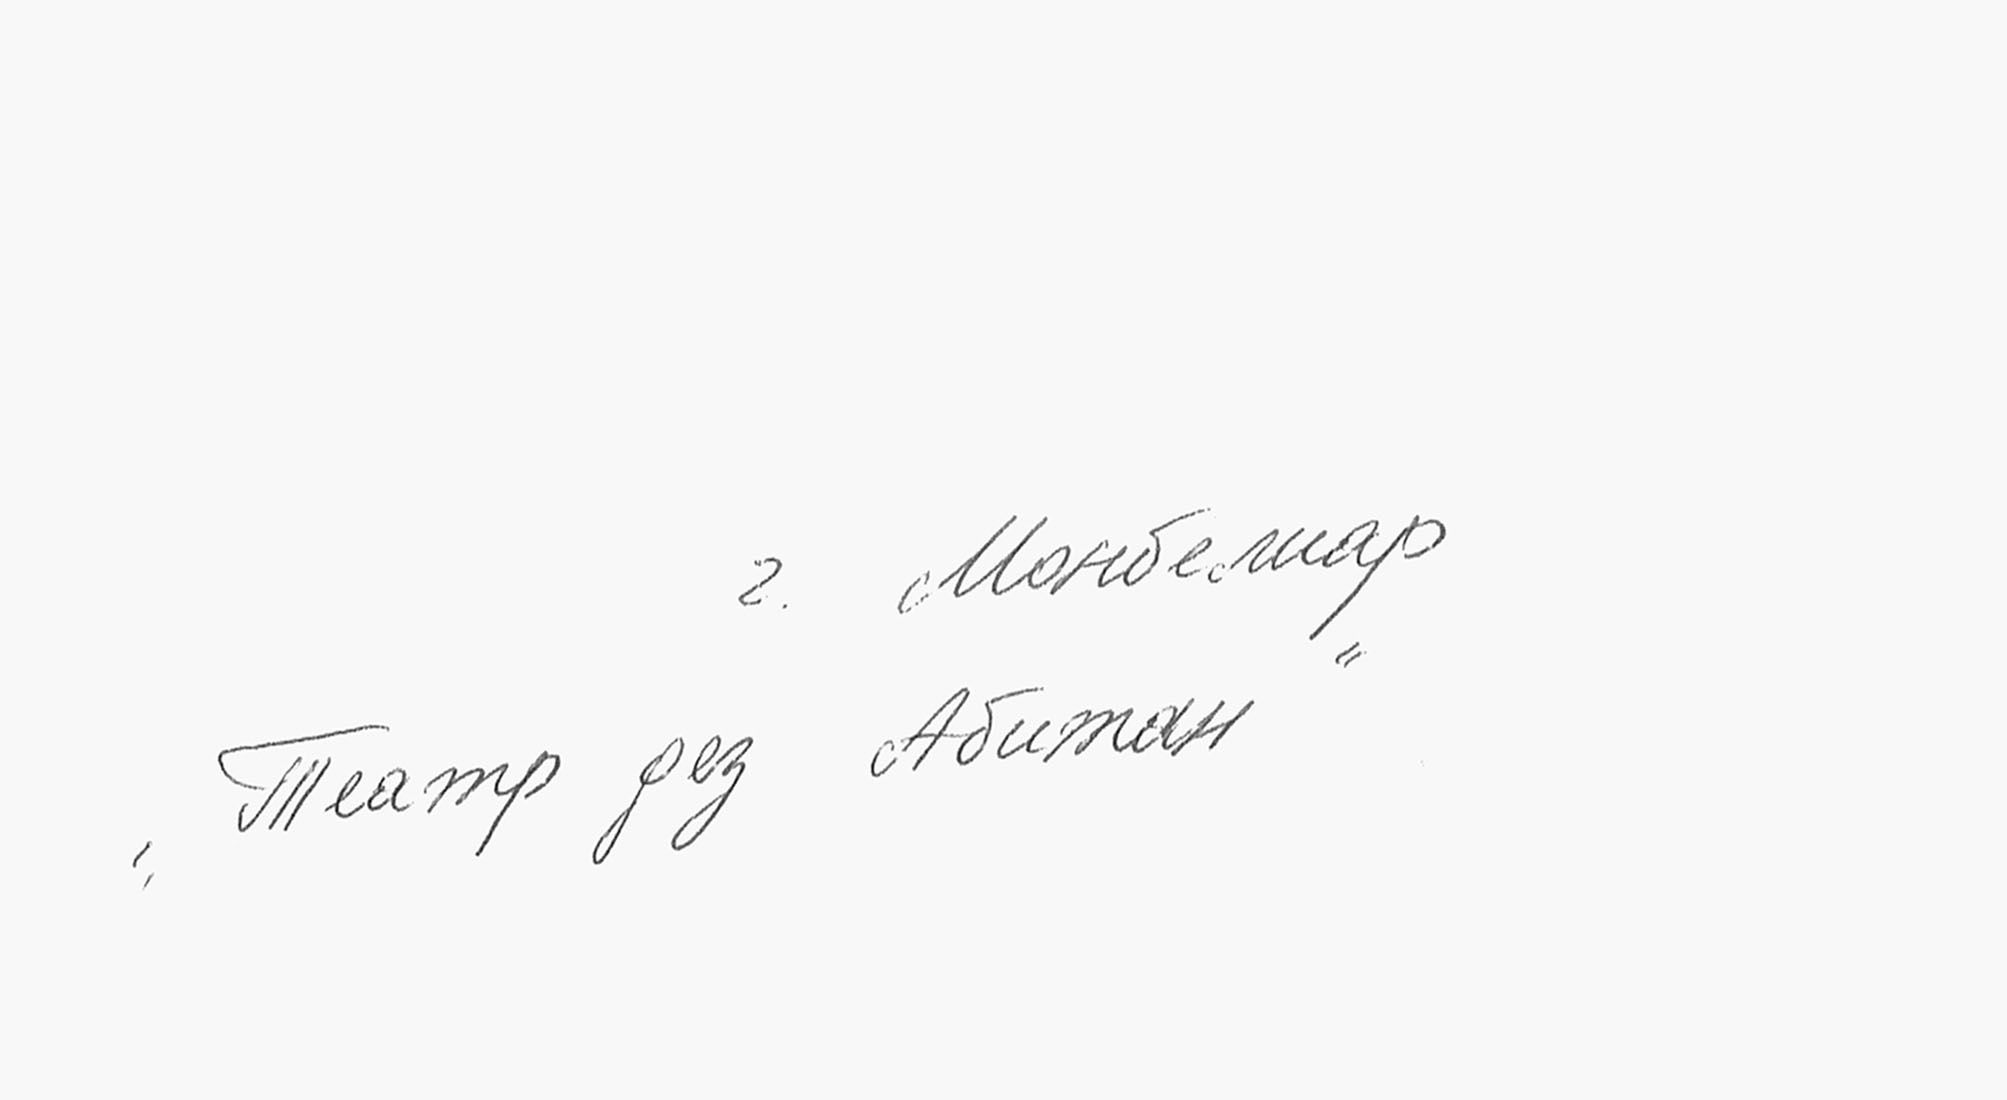 г. Монбелиар
„Театр дез Абитан"